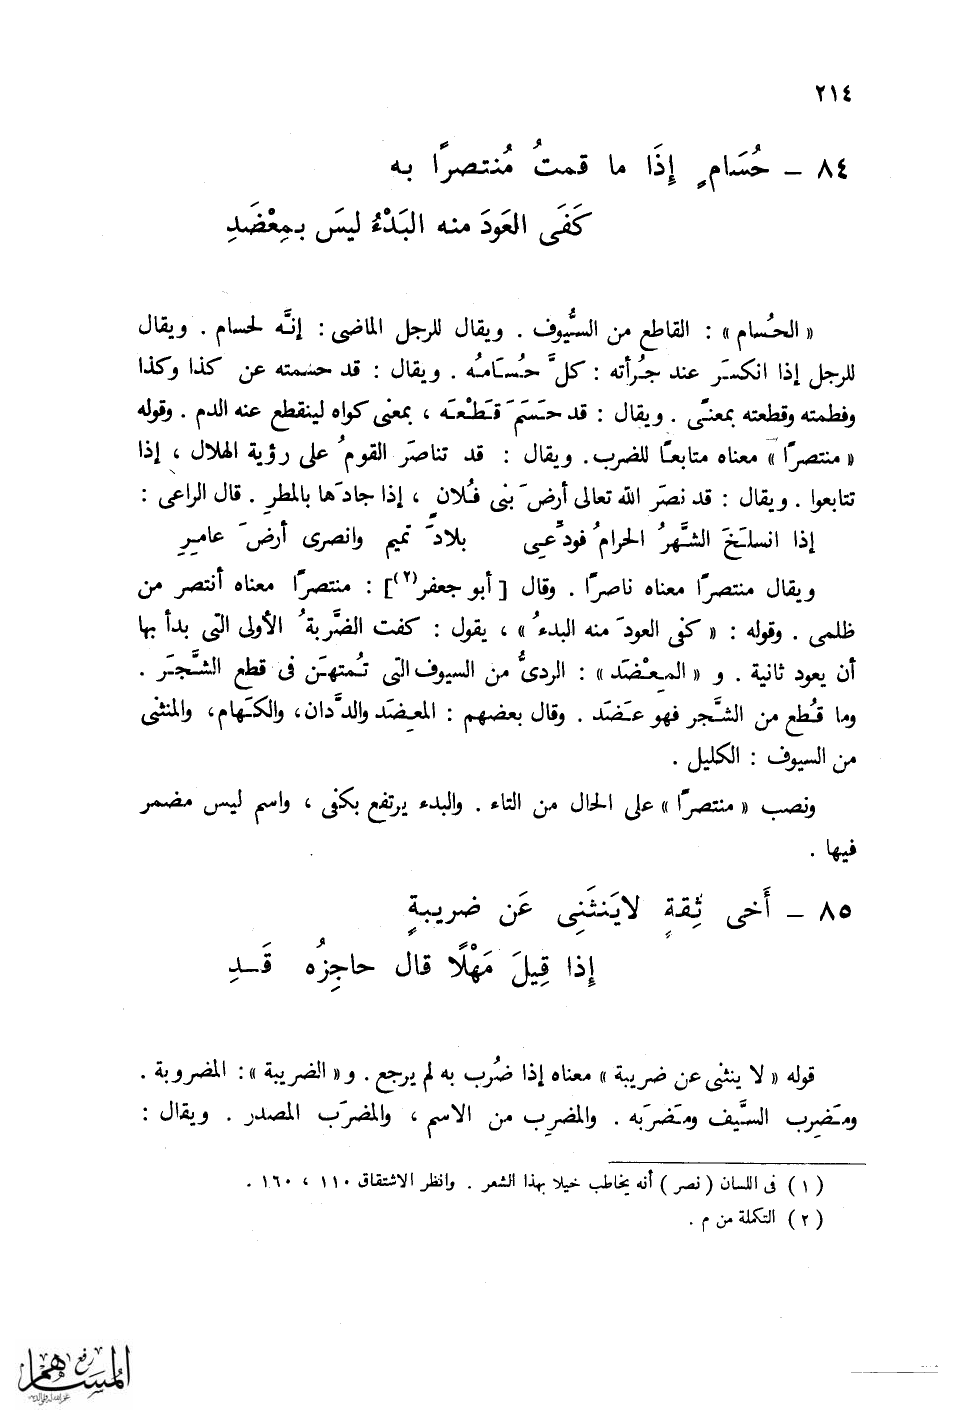 ٢١٤
٨٤ – حُسَامٍ إِذَا ما قمتُ مُنتصرًا به
كَفَى العَودَ منه البَدْءُ ليسَ بمِعْضَدِ
« الحُسام » : القاطع من السُّيوف . ويقال للرجل الماضى : إنَّه لحسام . ويقال
للرجل إذا انكسرَ عند جُرأته : كلَّ حُسَامُه . ويقال : قد حسمته عن كذا وكذا
وفطمته وقطعته بمعنًى . ويقال : قد حَسَمَ قَطْعَه ، بمعنى كواه لينقطع عنه الدم . وقوله
« منتصرًا » معناه متابعًا للضرب . ويقال : قد تناصَرَ القومُ على رؤية الهلال ، إذا
تتابعوا . ويقال : قد نصَرَ الله تعالى أرضَ بنى فُلان ، إذا جادَها بالمطرِ . قال الراعى :
إذا انسلَخَ الشَّهرُ الحرامُ فودِّعِى بلادَ تميم وانصرى أرضَ عامِرِ
ويقال منتصرًا معناه ناصرًا . وقال [ أبو جعفر(٢)] : منتصرًا معناه أنتصر من
ظلمى . وقوله : « كفى العودَ منه البدءُ » ، يقول : كفت الضَّربةُ الأولى التى بدأ بها
أن يعود ثانية . و « المِعْضَد » : الردىُّ من السيوف التى تُمتهَن فى قطع الشَّجَر .
وما قُطع من الشَّجر فهو عَضَد . وقال بعضهم : المعضَد والدَّدان، والكَهام، والمنثنى
من السيوف : الكليل .
ونصب « منتصرًا » على الحال من التاء . والبدء يرتفع بكفى ، واسم ليس مضمر
فيها .
٨٥ – أَخى ثِقةٍ لايَنثَنِى عَن ضريبةٍ
إِذا قِيلَ مَهْلًا قال حاجِزُه قَدِ
قوله « لا ينثنى عن ضريبة » معناه إذا ضُرب به لم يرجع . و« الضريبة » : المضروبة .
ومَضرِب السَّيف ومَضرَبه . والمضرِب من الاسم ، والمضرَب المصدر . ويقال :
( ١ ) فى اللسان ( نصر ) أنه يخاطب خيلا بهذا الشعر . وانظر الاشتقاق ١١٠ ، ١٦٠ .
( ٢ ) التكملة من م .